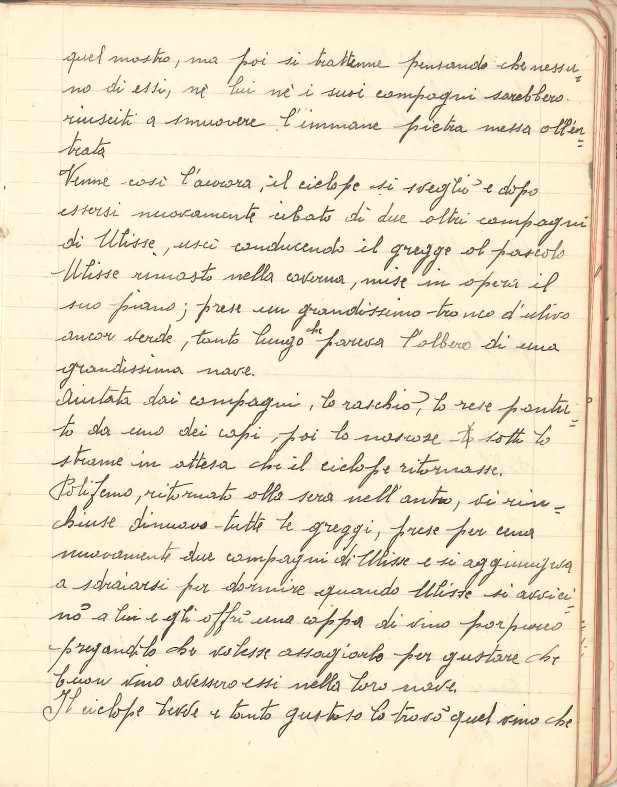 quel mostro, ma poi si trattenne pensando che nessu=
no di essi, nè lui nè i suoi compagni sarebbero
riusciti a smuovere l'immane pietra messa all'en=
trata
Venne così l'aurora, il ciclope si svegliò e dopo
essersi nuovamente cibato di due altri compagni
di Ulisse, uscì conducendo il gregge al pascolo
Ulisse rimasto nella caverna, mise in opera il
suo piano; prese un grandissimo tronco d'ulivo
ancor verde, tanto lungo che pareva l'albero di una
grandissima nave.
Aiutata dai compagni, lo raschiò, lo rese puntu=
to da uno dei capi, poi lo nascose sotto lo
strame in attesa che il ciclope ritornasse.
Polifemo, ritornato alla sera nell'antro, vi rin=
chiuse dinuovo tutte le greggi, prese per cena
nuovamente due compagni di Ulisse e si aggiungeva
a sdraiarsi per dormire quando Ulisse si avvici=
nò a lui e gli offrì una coppa di vino porpureo
pregandolo che volesse assagiarlo per gustare che
buon vino avessero essi nella loro nave.
Il ciclope bevve e tanto gustoso lo trovò quel vino che